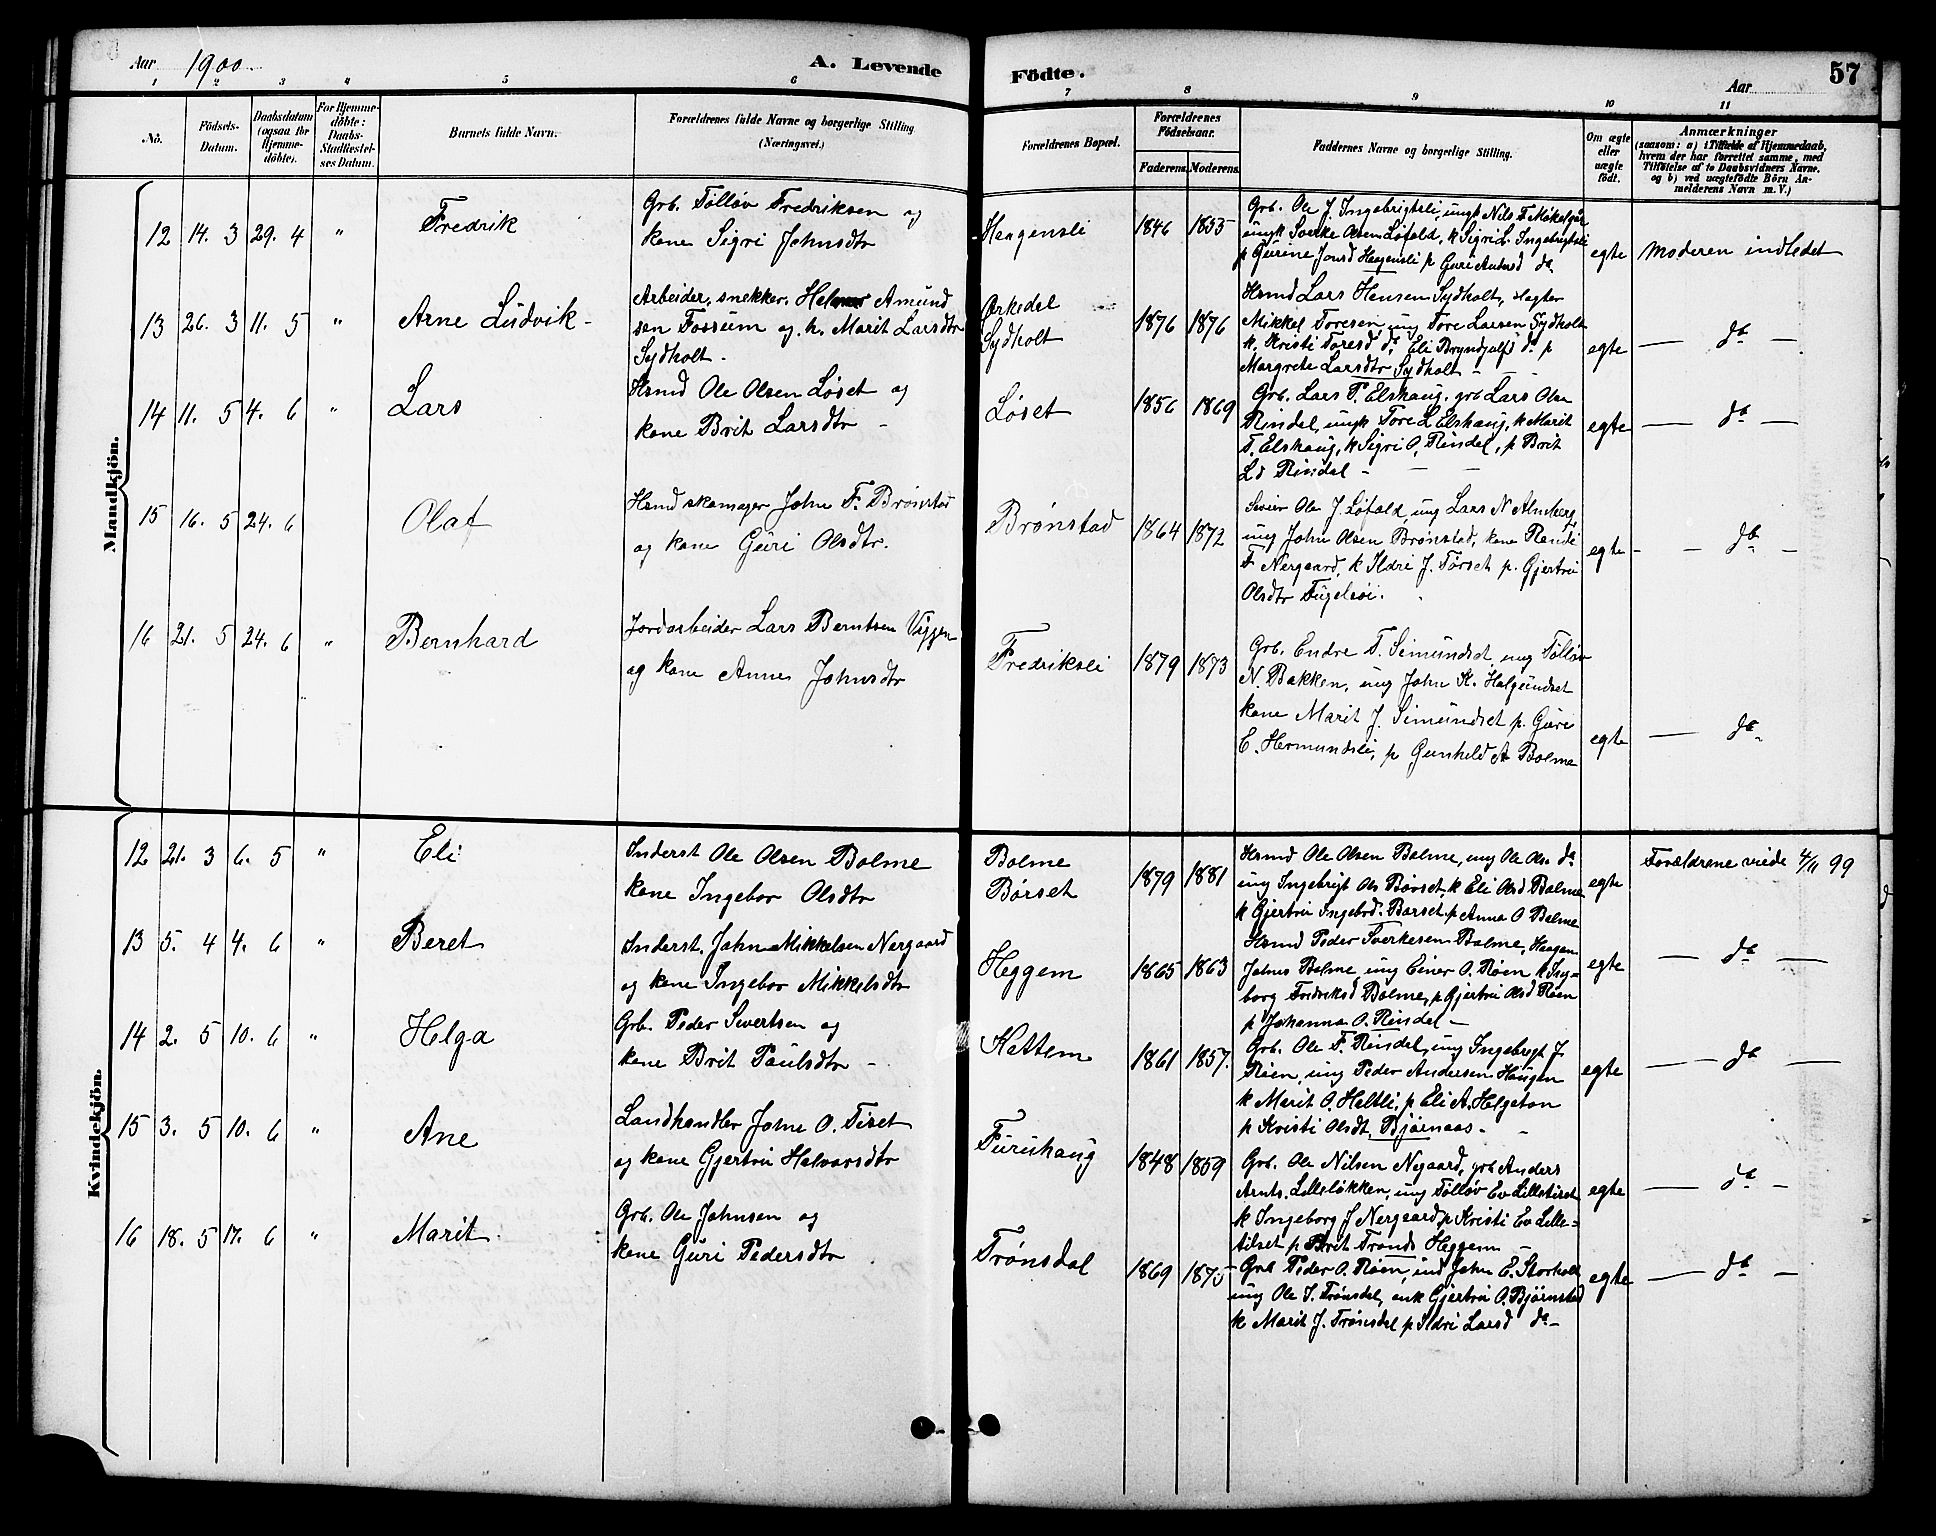 Aar 1900
A. Levende
Födte.
Aar
57
1 2 3 4 5 6 7 8 9 10 11
No.
Födsels-
Datum.
Daabsdatum
(ogsaa for
Hjemme-
döbte).
For Hjemme-
döbte:
Daabs-
Stadfæstel-
ses Datum.
Barnets fulde Navn.
Forældrenes fulde Navne og borgerlige Stilling
(Næringsvei.)
Forældrenes Bopæl.
Forældrenes
Födselsaar.
Faderens.
Moderens.
Faddernes Navne og borgerlige Stilling.
Om ægte
eller
uægte
födt.
Anmærkninger
(saasom: a) i Tilfælde af Hjemmedaab,
hvem der har forrettet samme, med
Tilföielse af to Daabsvidners Navne.
og b) ved uægtefödte Börn An-
melderens Navn m. V.)
Mandkjön.
12 14. 3 29. 4 " Fredrik
Grb. Tölløv Fredriksen og
kone Sigri Johnsdtr
Haagensli 1846 1855
Grb. Ole J. Ingebrigtsli, ungk Nils F Mökelgår
ungk Sverke Olsen Løfald, k Sigri L. Ingebrigtsli
p Gurine Jonsd Haagensli p Guri Andersd do
egte Moderen indledet
13 26. 3 11. 5 " Arne Ludvik -
Arbeider, snekker. Amund
sen Fossum og k. Marit Larsdtr
Sydholt -
Ørkedal
Sydholt
1876 1876
Hsmd Lars Hansen Sydholt, slagter
Mikkel Toresen, ung Tore Larsen Sydholt
k. Kristi Toresd do, Eli Bryndjulfs do p
Margrete Larsdtr Sydholt -
egte — do —.
14 11. 5 4. 6 " Lars
Hsmd Ole Olsen Løset og
kone Brit Larsdtr -
Løset 1856 1869
Grb. Lars T. Elshaug, grb Lars Olsen
Rindal, ungk Tore L Elshaug, k Marit
T. Elshaug, k Sigri O. Rindal, p Brit
L d Rindal - - -
egte — do —
15 16. 5 24. 6 Olaf
Hsmd skomager John F. Brønstad
og kone Guri Olsdtr.
Brønstad 1864 1872
Ole J. Løfald, ung Lars N Almberg,
ung John Olsen Brønstad, kone Randi
F Nergaard, k Ildri J. Tørset p. Gjertru
Olsdtr Fugelsöi.
egte - - do -
16 21. 5 24. 6 " Bernhard
Jordarbeider Lars Berntsen Viggen
og kone Anne Johnsdtr
Fredriksli 1879 1873
Grb. Endre T. Simundset, ung Tölløv
N. Bakken, ung John K. Halgundset
kone Marit J. Simundset p. Guri
E. Hermundsli, p Gunhild A Bolme
egte — do
Kvindekjön.
12 21. 3 6. 5 " Eli
Inderst Ole Olsen Bolme
kone Ingebor Olsdtr
Bolme
Børset
1879 1881
Hsmd Ole Olsen Bolme, ung Ole Ols. do
ung Ingebrigt Ols Børset, k Eli Olsd Bolme
k Gjertru Ingebrd. Børset, p Anna O Bolme
egte Forældrene viede 4/11 99
13 5. 4 4. 6 " Beret
Inderst. John Mikkelsen Nergaard
og kone Ingebor Mikkelsdtr
Heggem 1865 1863
Hsmd Peder Sverkesen Bolme, Haagen
Johns Bolme, ung Einar O. Røen k Ing-
borg Fredriksd Bolme, p Gjertru Olsd Røen
p Johanna O. Rindal -
egte — do —
14 2. 5 10. 6 " Helga
Grb. Peder Sivertsen og
kone Brit Paulsdtr -
Kattem 1861 1857.
Grb. Ole F. Rindal, ung Ingebrigt J.
Røen, ung Peder Andersen Haugen
k Marit O. Heltli, p Eli A. Helgeton
p Kristi Olsdt, Bjørnaas -
egte — do —
15 3. 5 10. 6 " Ane
Landhandler John O. Tiset
og kone Gjertru Halvorsdtr
Furuhaug 1848 1859
Grb. Ole Nilsen Negaard, grb Anders
Arnts. Lillelökken, ung Tölløv Ev Lilletiset
k Ingeborg J Nergaard, p Kristi Ev Lille-
tilset p Brit Tronds Heggem -
egte — do -
16 18. 5 17. 6 " Marit
Grb. Ole Johnsen og
kone Guri Pedersdtr
Trønsdal 1869 1875
Grb Peder O. Røen, ind John E. Storholt
ung Ole J. Trønsdal, enk Gjertru O. Bjørnstad
k Marit J. Trønsdal p Ildri Larsd do -
egte — do —